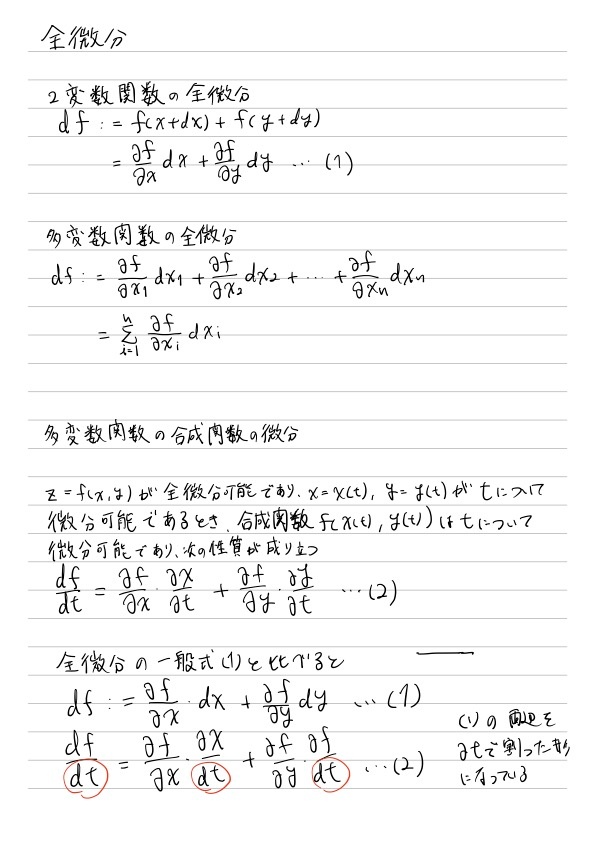 全微分
2変数関数の全微分
df := f(x+dx) + f(y+dy)
= ∂f/∂x dx + ∂f/∂y dy … (1)
多変数関数の全微分
df := ∂f/∂x₁ dx₁ + ∂f/∂x₂ dx₂ + … + ∂f/∂xₙ dxₙ
= Σ_{i=1}^{n} ∂f/∂xᵢ dxᵢ
多変数関数の合成関数の微分
z=f(x,y)が全微分可能であり、x=x(t), y=y(t)がtについて
微分可能であるとき、合成関数 f(x(t), y(t))はtについて
微分可能であり、次の性質が成り立つ
df/dt = ∂f/∂x · ∂x/∂t + ∂f/∂y · ∂y/∂t … (2)
全微分の一般式(1)と比べると
df := ∂f/∂x · dx + ∂f/∂y dy … (1)
df/dt = ∂f/∂x · ∂x/dt + ∂f/∂y · ∂f/dt … (2)
(1)の両辺を
∂tで割った形
になっている